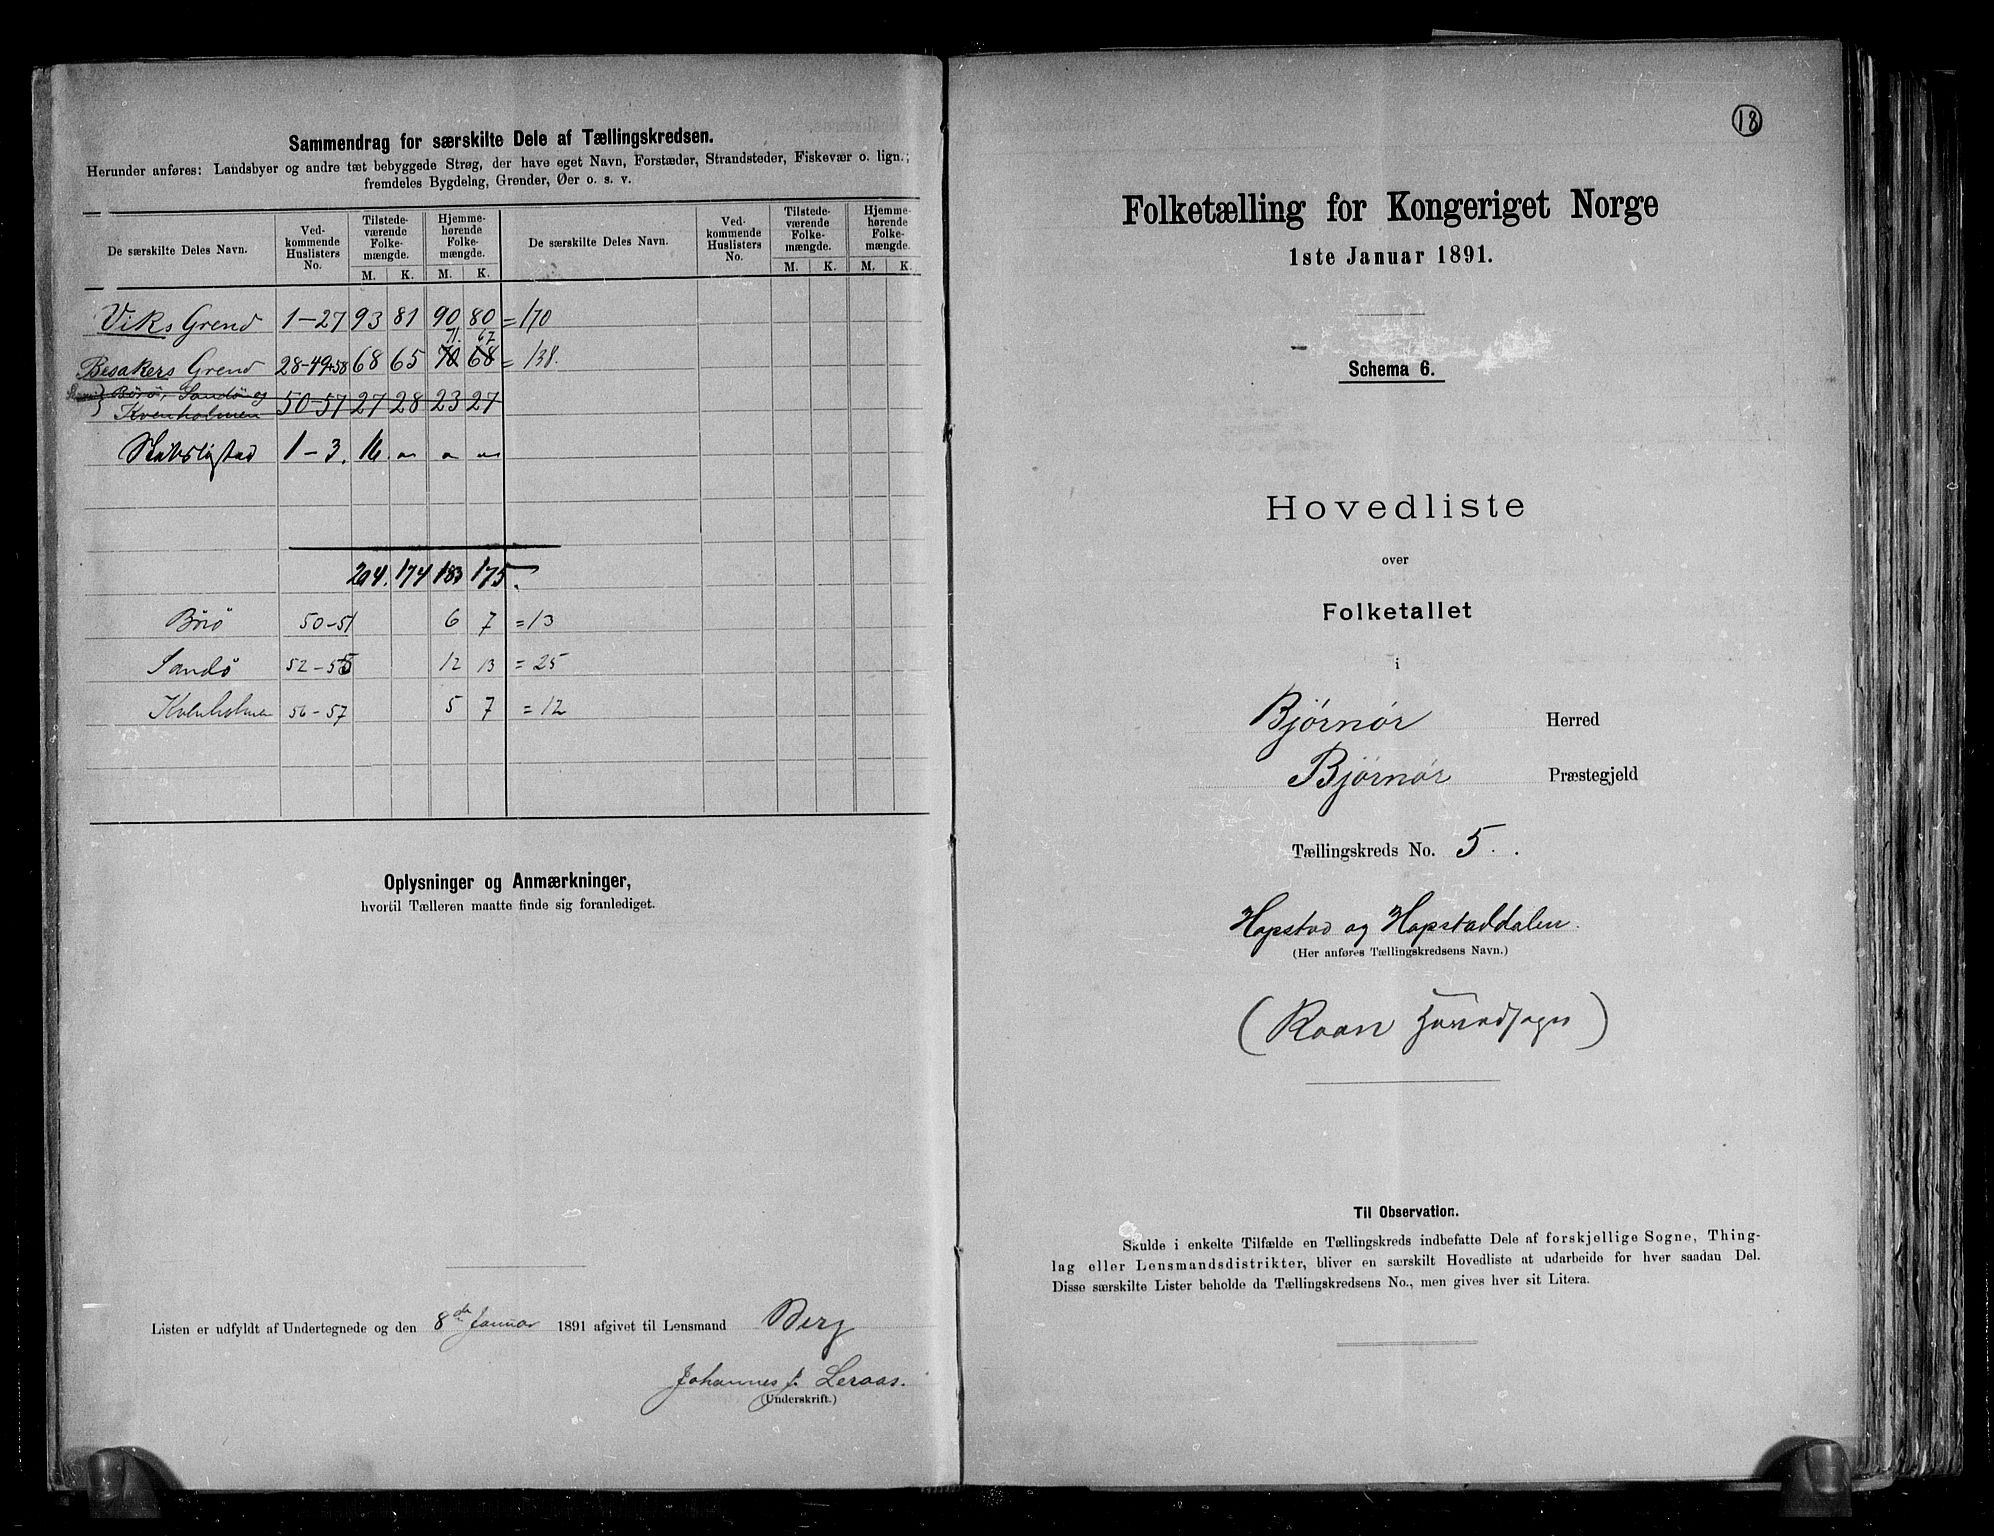 Sammendrag for særskilte Dele af Tællingskredsen.
Herunder anføres: Landsbyer og andre tæt bebyggede Strøg, der have eget Navn, Forstæder, Strandsteder, Fiskevær o. lign.;
fremdeles Bygdelag, Grender, Øer o. s. v.
De særskilte Deles Navn. Ved-kommende Huslisters No. Tilstede-værende Folke-mængde. Hjemme-hørende Folke-mængde. De særskilte Deles Navn. Ved-kommende Huslisters No. Tilstede-værende Folke-mængde. Hjemme-hørende Folke-mængde.
M. K. M. K. M. K. M. K.
Viks Grend 1-27 93 81 90 80 = 170
71. 67
Besakers Grend 28-49+58 68 65 70 68 = 138.
Börö, Sandö og
Kvenholmen 50-57 27 28 23 27
1-3. 16 " " "
204. 174 183 175.
Börö 50-51 6 7 = 13
Sandö 52-55 12 13 = 25
Kvenholmen 56-57 5 7 = 12
Oplysninger og Anmærkninger,
hvortil Tælleren maatte finde sig foranlediget.
Listen er udfyldt af Undertegnede og den 8de Januar 1891 afgivet til Lensmand Berg
Johannes J. Leraas.
(Underskrift.)
18
Folketælling for Kongeriget Norge
1ste Januar 1891.
Schema 6.
Hovedliste
over
Folketallet
i
Bjørnør Herred
Bjørnør Præstegjeld
Tællingskreds No. 5.
Hopstad og Hopstaddalen.
(Her anføres Tællingskredsens Navn.)
(Roan Hovedsogn)
Til Observation.
Skulde i enkelte Tilfælde en Tællingskreds indbefatte Dele af forskjellige Sogne, Thing-
lag eller Lensmandsdistrikter, bliver en særskilt Hovedliste at udarbeide for hver saadan Del.
Disse særskilte Lister beholde da Tællingskredsens No., men gives hver sit Litera.